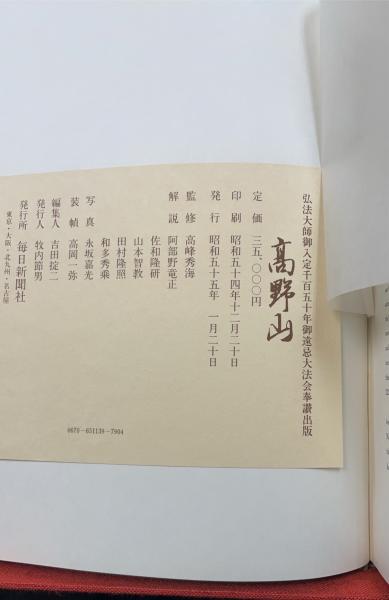 弘法大師御入定千百五十年御遠忌大法会奉讃出版
高野山
定価 三五、〇〇〇円
印刷 昭和五十四年十二月二十日
発行 昭和五十五年 一月二十日
監修 高峰秀海
解説 阿部野竜正
佐和隆研
山本智教
田村隆照
和多秀乗
写真 永坂嘉光
装幀 高岡一弥
編集人 吉田掟二
発行人 牧内節男
発行所 毎日新聞社
東京・大阪・北九州・名古屋
0070-651139-7904